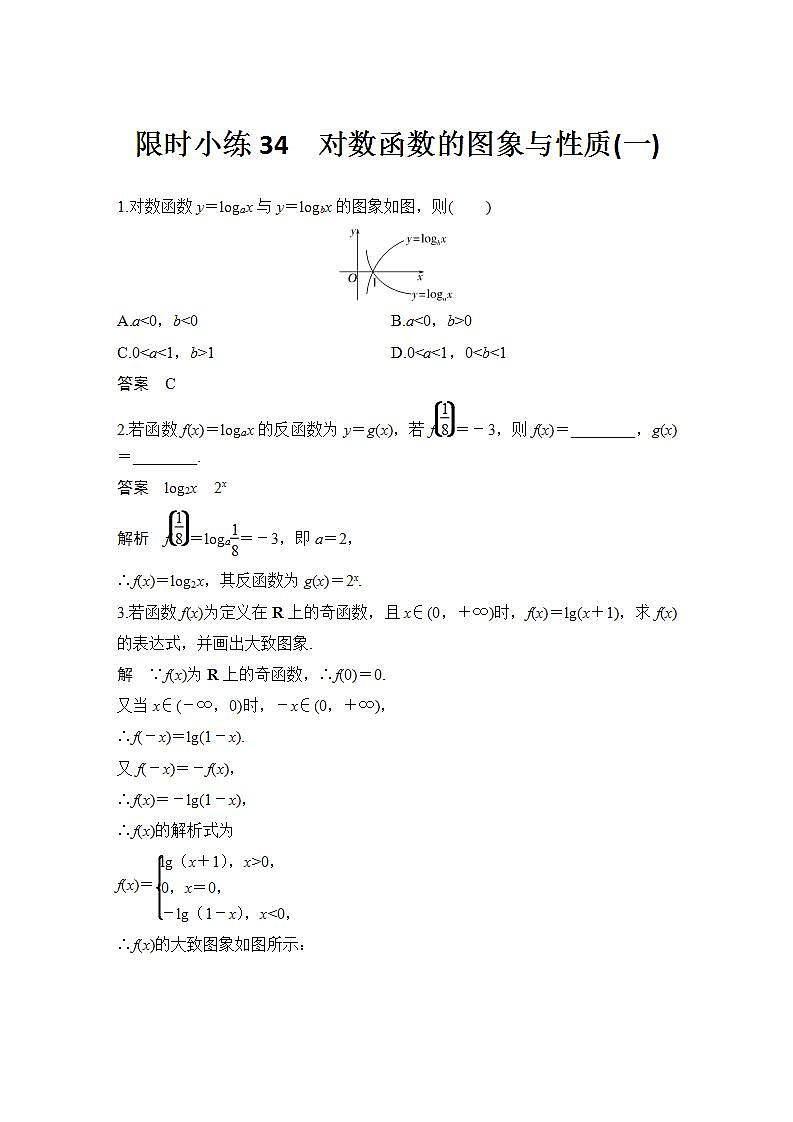 限时小练34　对数函数的图象与性质(一)
1.对数函数y＝logₐx与y＝log_bx的图象如图，则(　　)
y
y=log_bx
O
1
x
y=logₐx
A.a<0，b<0　　B.a<0，b>0
C.0<a<1，b>1　　D.0<a<1，0<b<1
答案　C
2.若函数f(x)＝logₐx的反函数为y＝g(x)，若f(1/8)＝－3，则f(x)＝________，g(x)
＝________.
答案　log₂x　2ˣ
解析　f(1/8)＝logₐ1/8＝－3，即a＝2，
∴f(x)＝log₂x，其反函数为g(x)＝2ˣ.
3.若函数f(x)为定义在R上的奇函数，且x∈(0，＋∞)时，f(x)＝lg(x＋1)，求f(x)
的表达式，并画出大致图象.
解　∵f(x)为R上的奇函数，∴f(0)＝0.
又当x∈(－∞，0)时，－x∈(0，＋∞)，
∴f(－x)＝lg(1－x).
又f(－x)＝－f(x)，
∴f(x)＝－lg(1－x)，
∴f(x)的解析式为
f(x)＝{lg（x＋1），x>0，
0，x＝0，
－lg（1－x），x<0，
∴f(x)的大致图象如图所示：